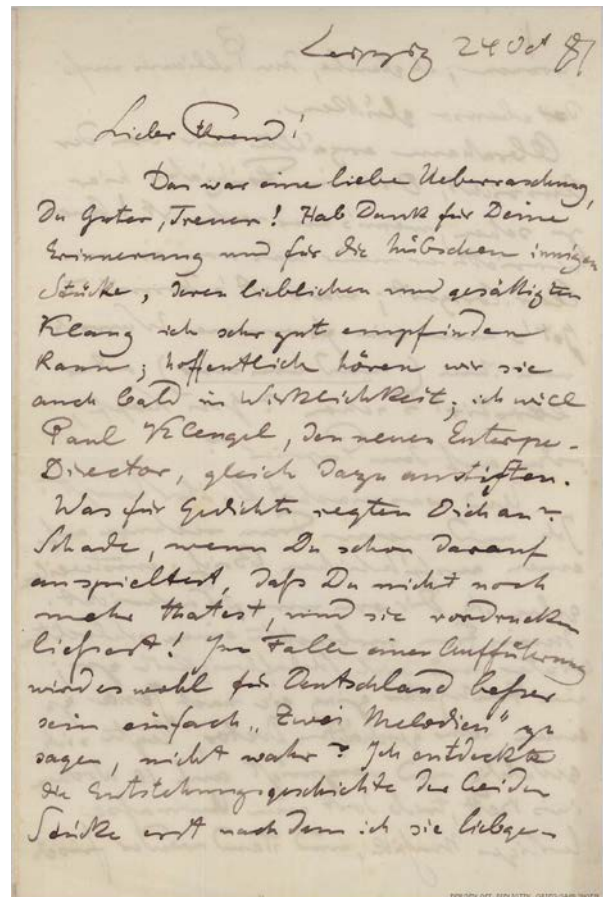 Leipzig 24 Oct 81
Lieber Freund!
Das war eine liebe Ueberraschung,
Du Guter, Treuer! Hab Dank für Deine
Erinnerung und für die hübschen innigen
Stücke, deren lieblichen und gesättigten
Klang ich sehr gut empfinden
kann; hoffentlich hören wir sie
auch bald in Wirklichkeit; ich will
Paul Klengel, den neuen Euterpe-
Director, gleich dazu anstiften.
Was für Gedichte regten Dich an?
Schade, wenn Du schon darauf
anspieltest, daß Du nicht noch
mehr thatest, und sie vordrucken
ließest! Im Falle einer Aufführung
wird es wohl für Deutschland beßer
sein einfach „Zwei Melodien" zu
sagen, nicht wahr? Ich entdeckte
die Entstehungsgeschichte der beiden
Stücke erst nachdem ich sie liebge-